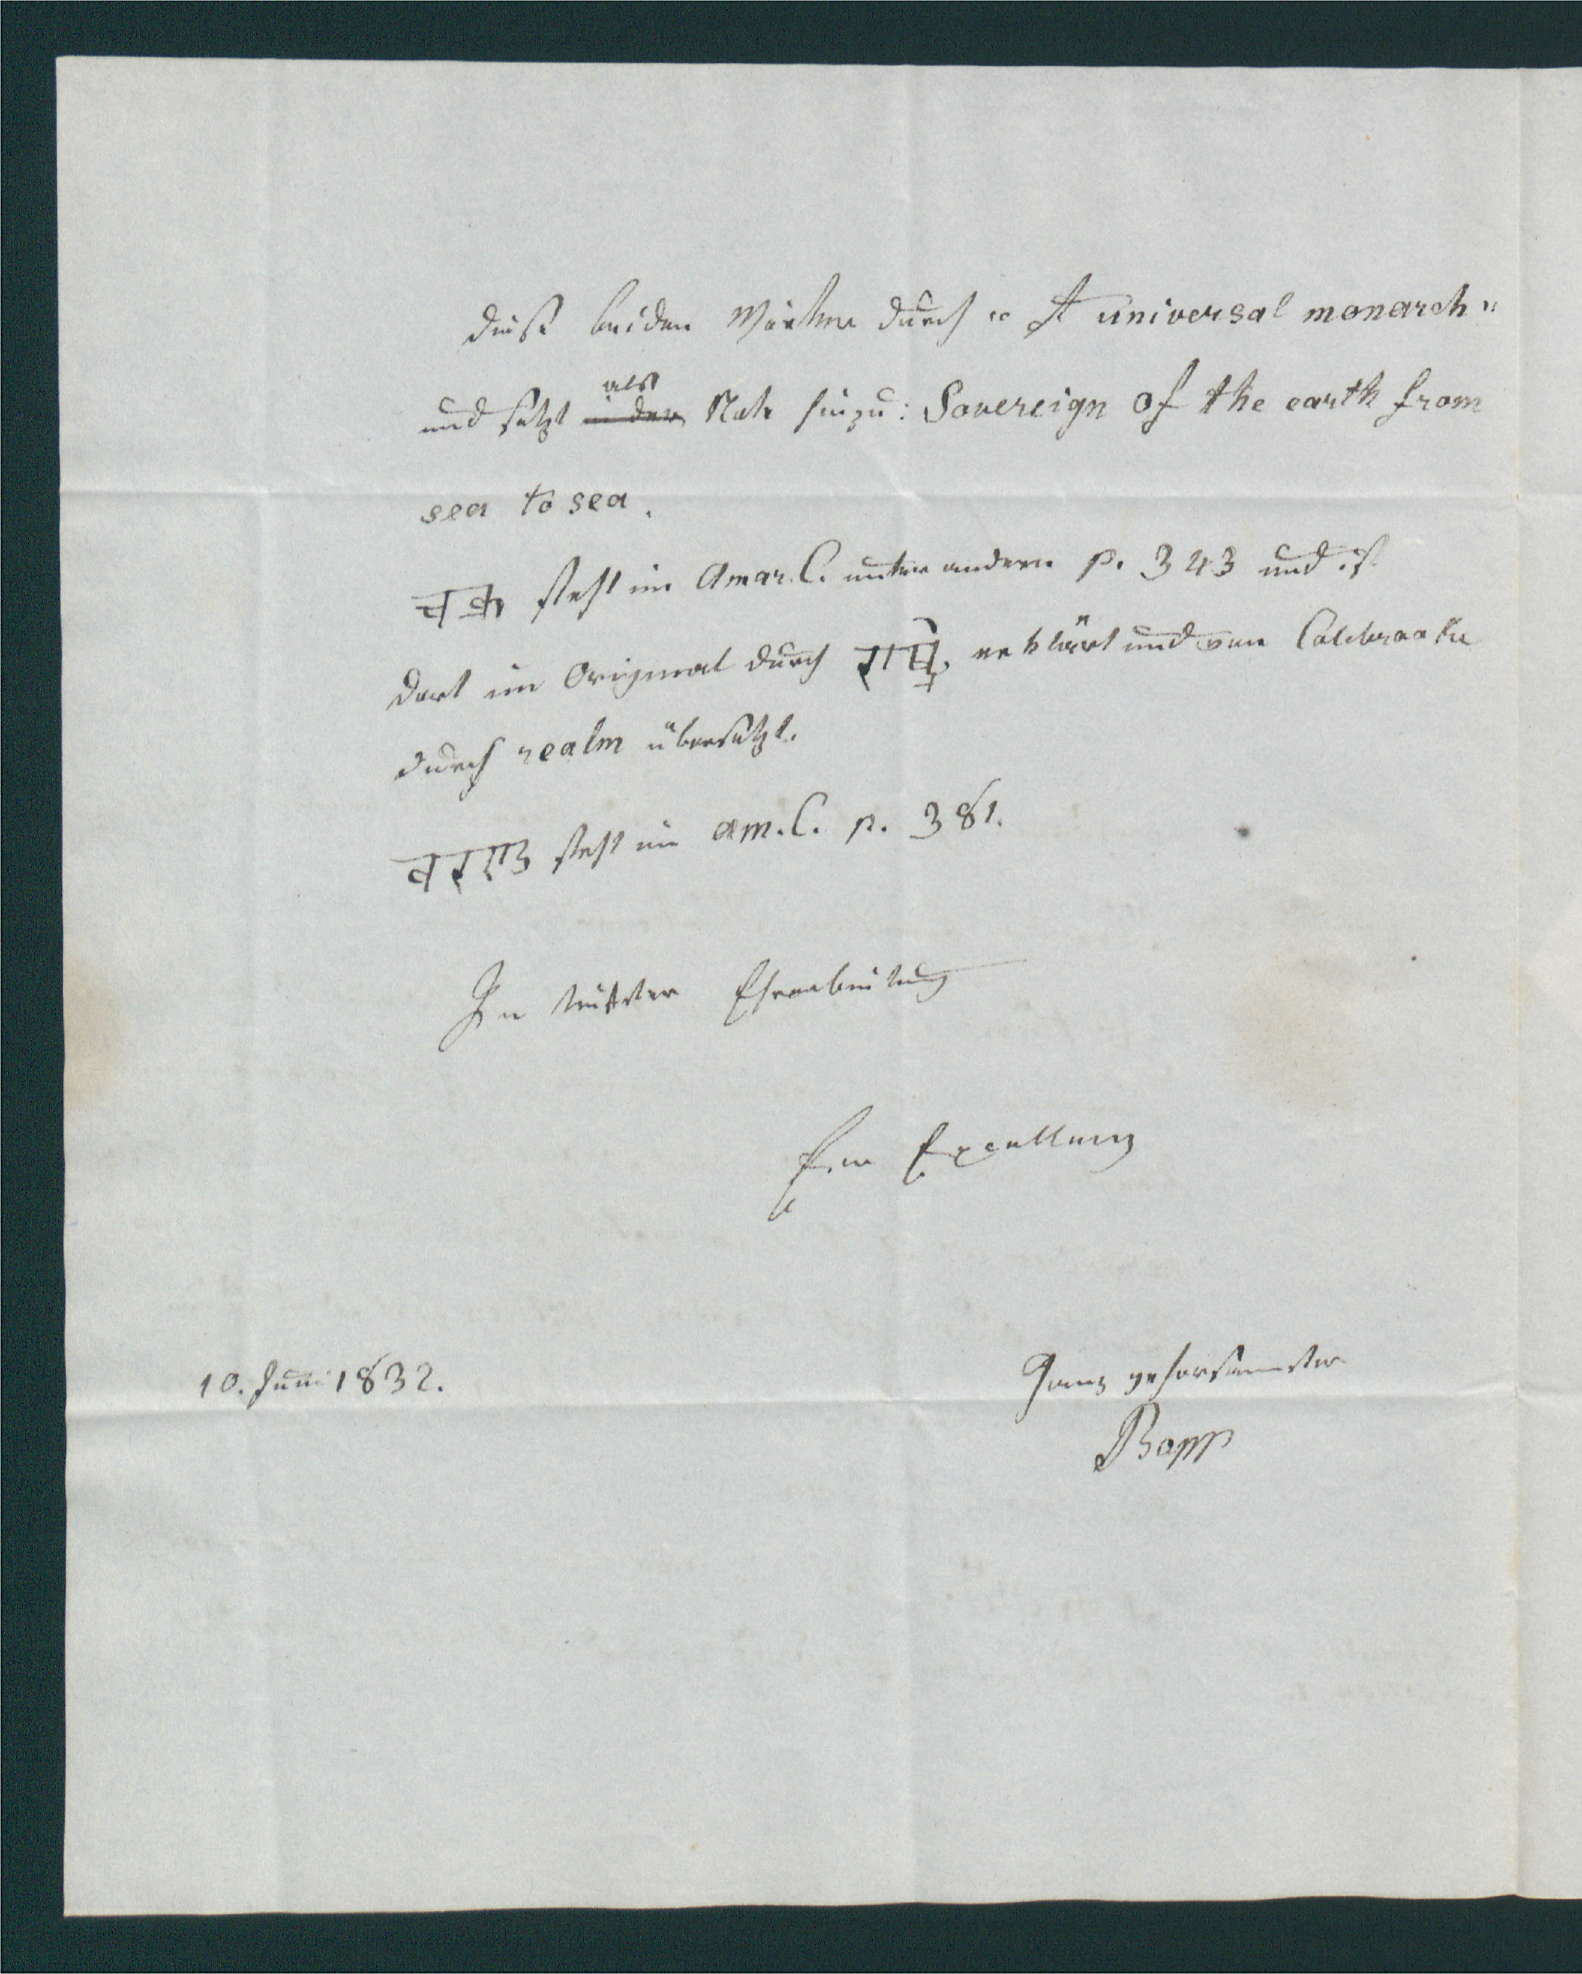 diese beiden Wörter durch „A universal monarch"
als
und setzt in der Note hinzu: Sovereign of the earth from
sea to sea.
चक्र steht im Amar. C. unter andern p. 343 und ist
dort im Original durch राष्ट्र erklärt und von Colebrooke
durch realm übersetzt.
steht im am. C. p. 381.
In tiefster Ehrerbietung
Ew Excellenz
10. Juni 1832.
Ganz gehorsamster
Bopp